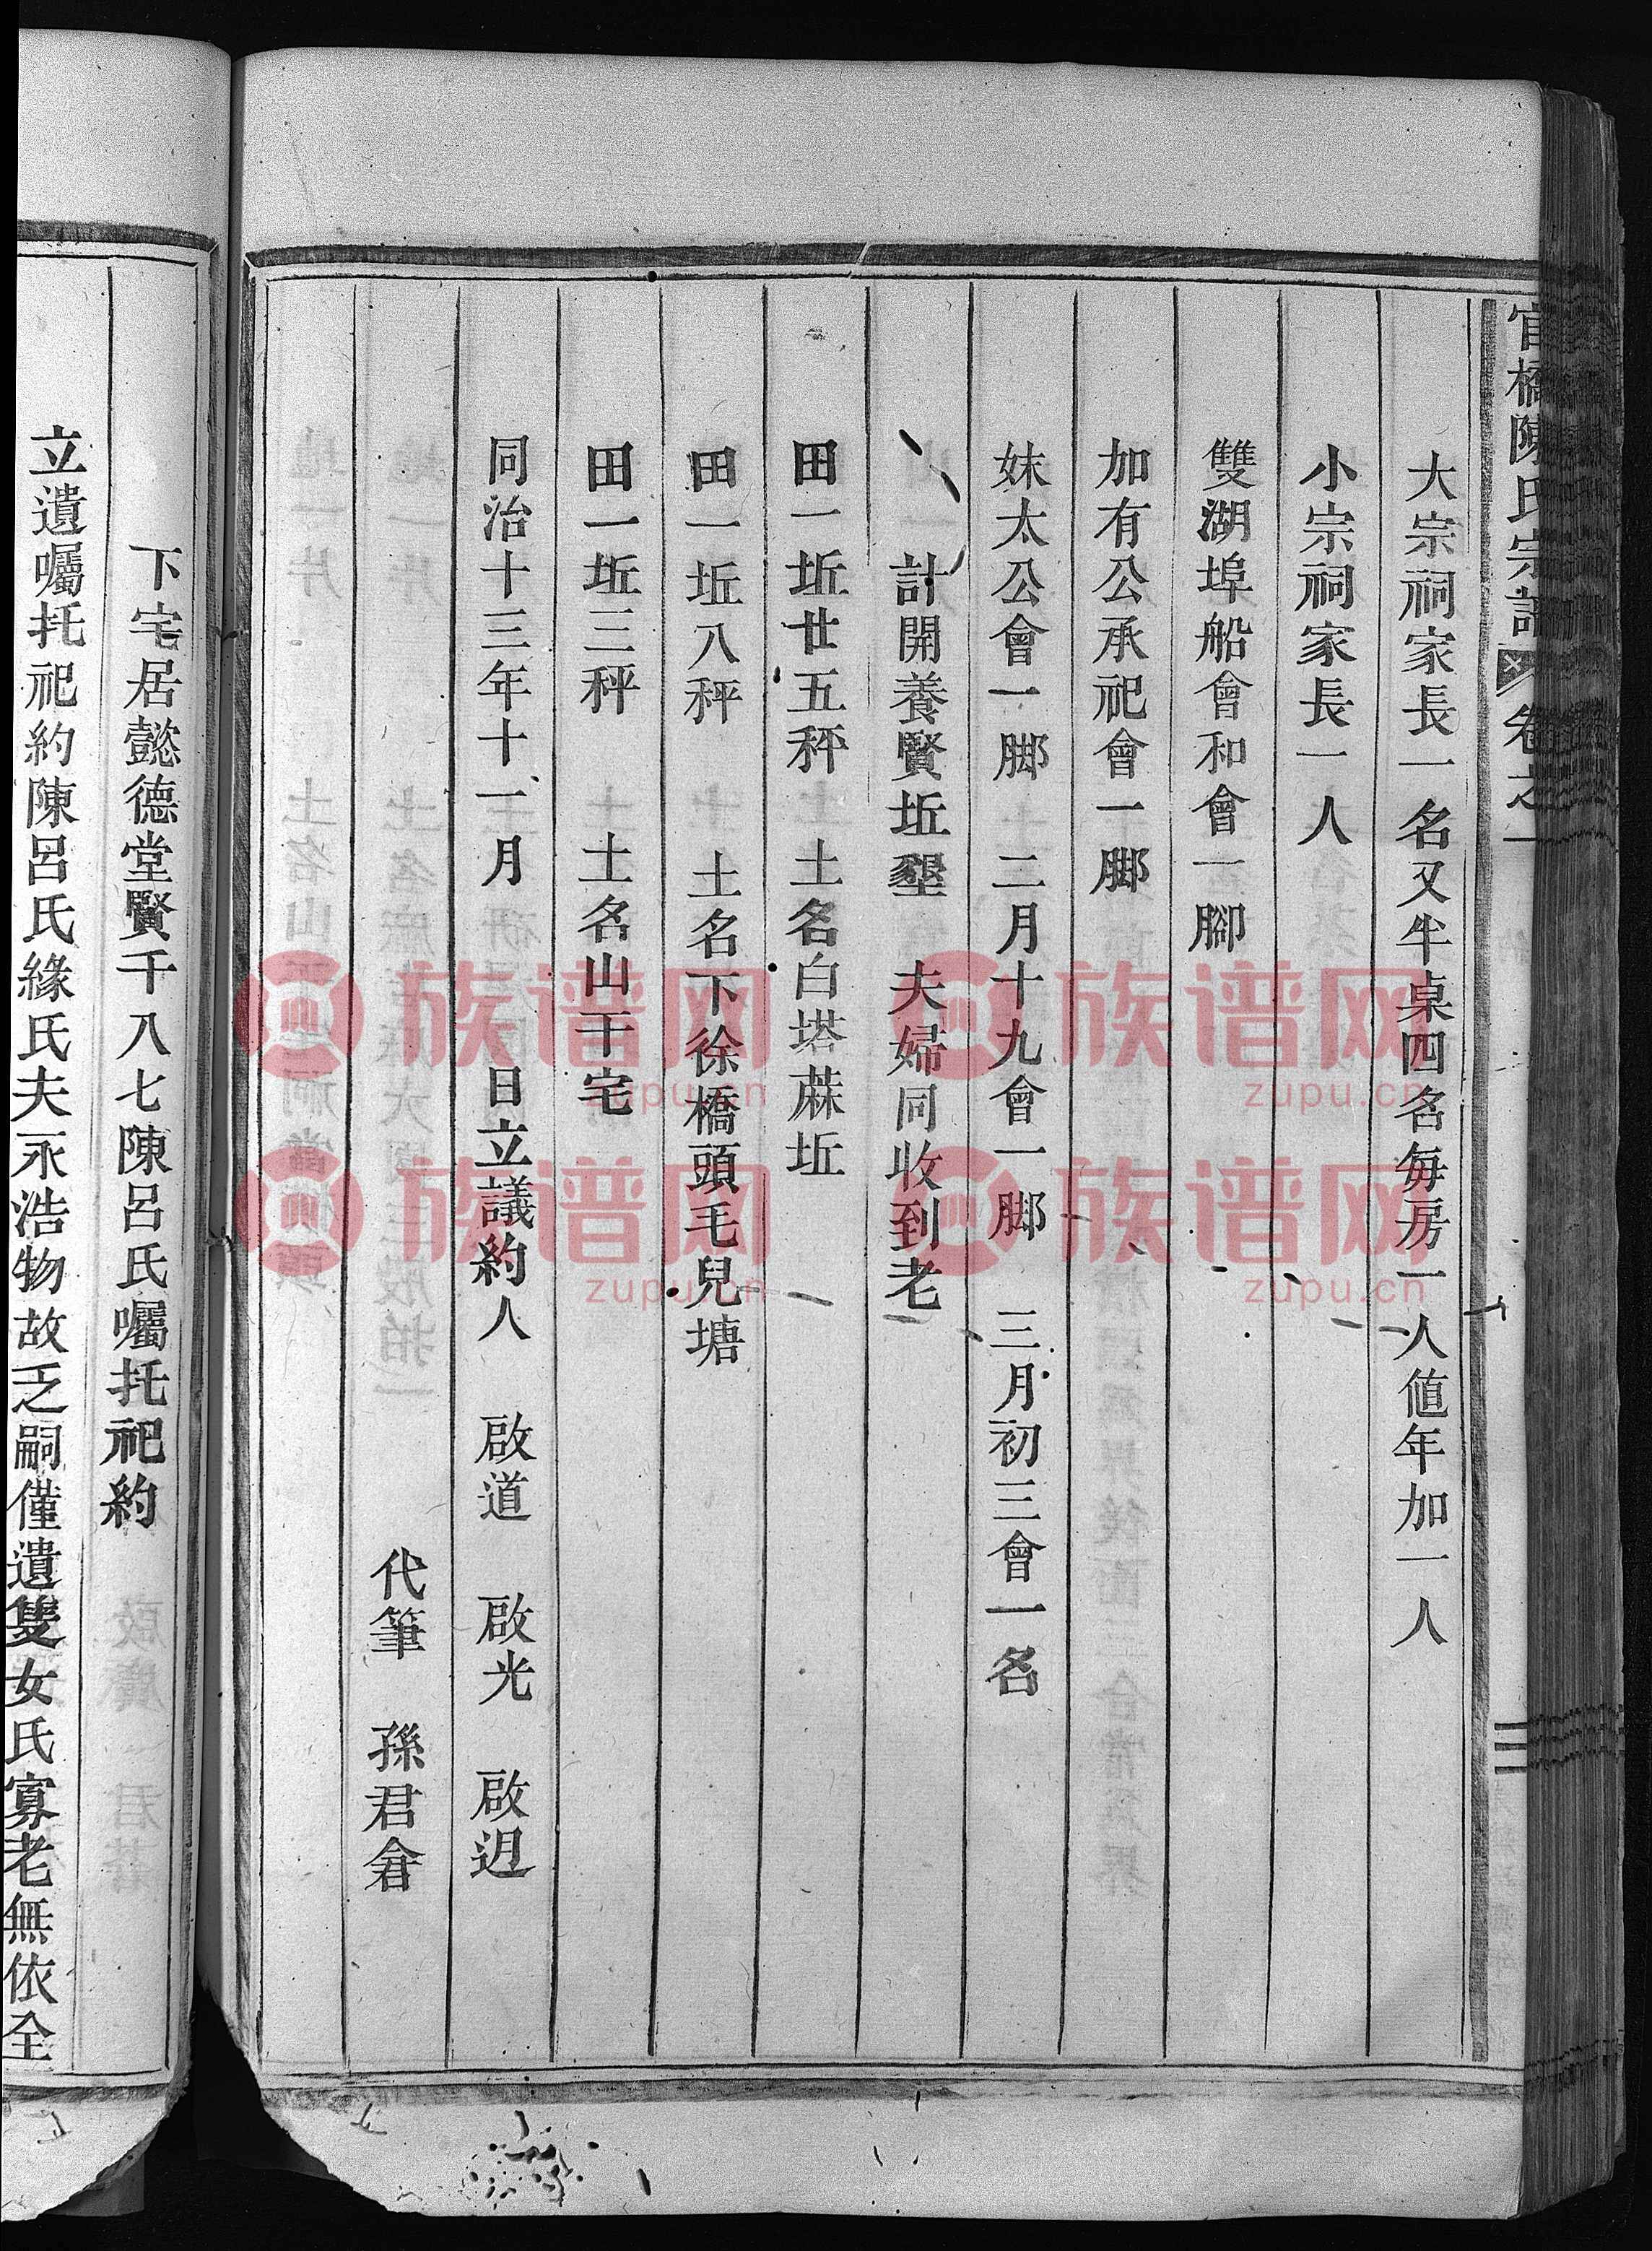 官橋陳氏宗譜 卷之一
二
大宗祠家長一名又半桌四名每房一人値年加一人
小宗祠家長一人
雙湖埠船會和會一腳
加有公承祀會一脚
妹太公會一脚 二月十九會一脚 三月初三會一名
計開養賢坵墾 夫婦同收到老
田一坵廿五秤 土名白塔蔴坵
田一坵八秤 土名下徐橋頭毛兒塘
田一坵三秤 土名山干宅
同治十三年十一月 日立議約人 啟道 啟光 啟迌
代筆 孫君倉
下宅居懿德堂賢千八七陳呂氏囑托祀約
立遺囑托祀約陳呂氏緣氏夫永浩物故乏嗣僅遺隻女氏寡老無依全
族谱网
zupu.cn
族谱网
zupu.cn
族谱网
zupu.cn
族谱网
zupu.cn